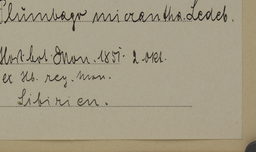 Plumbago micrantha. Ledeb.
Hort. bot. Mon. 1851. 2 Okt.
ex Hb. reg. Mon.
Sibirien.